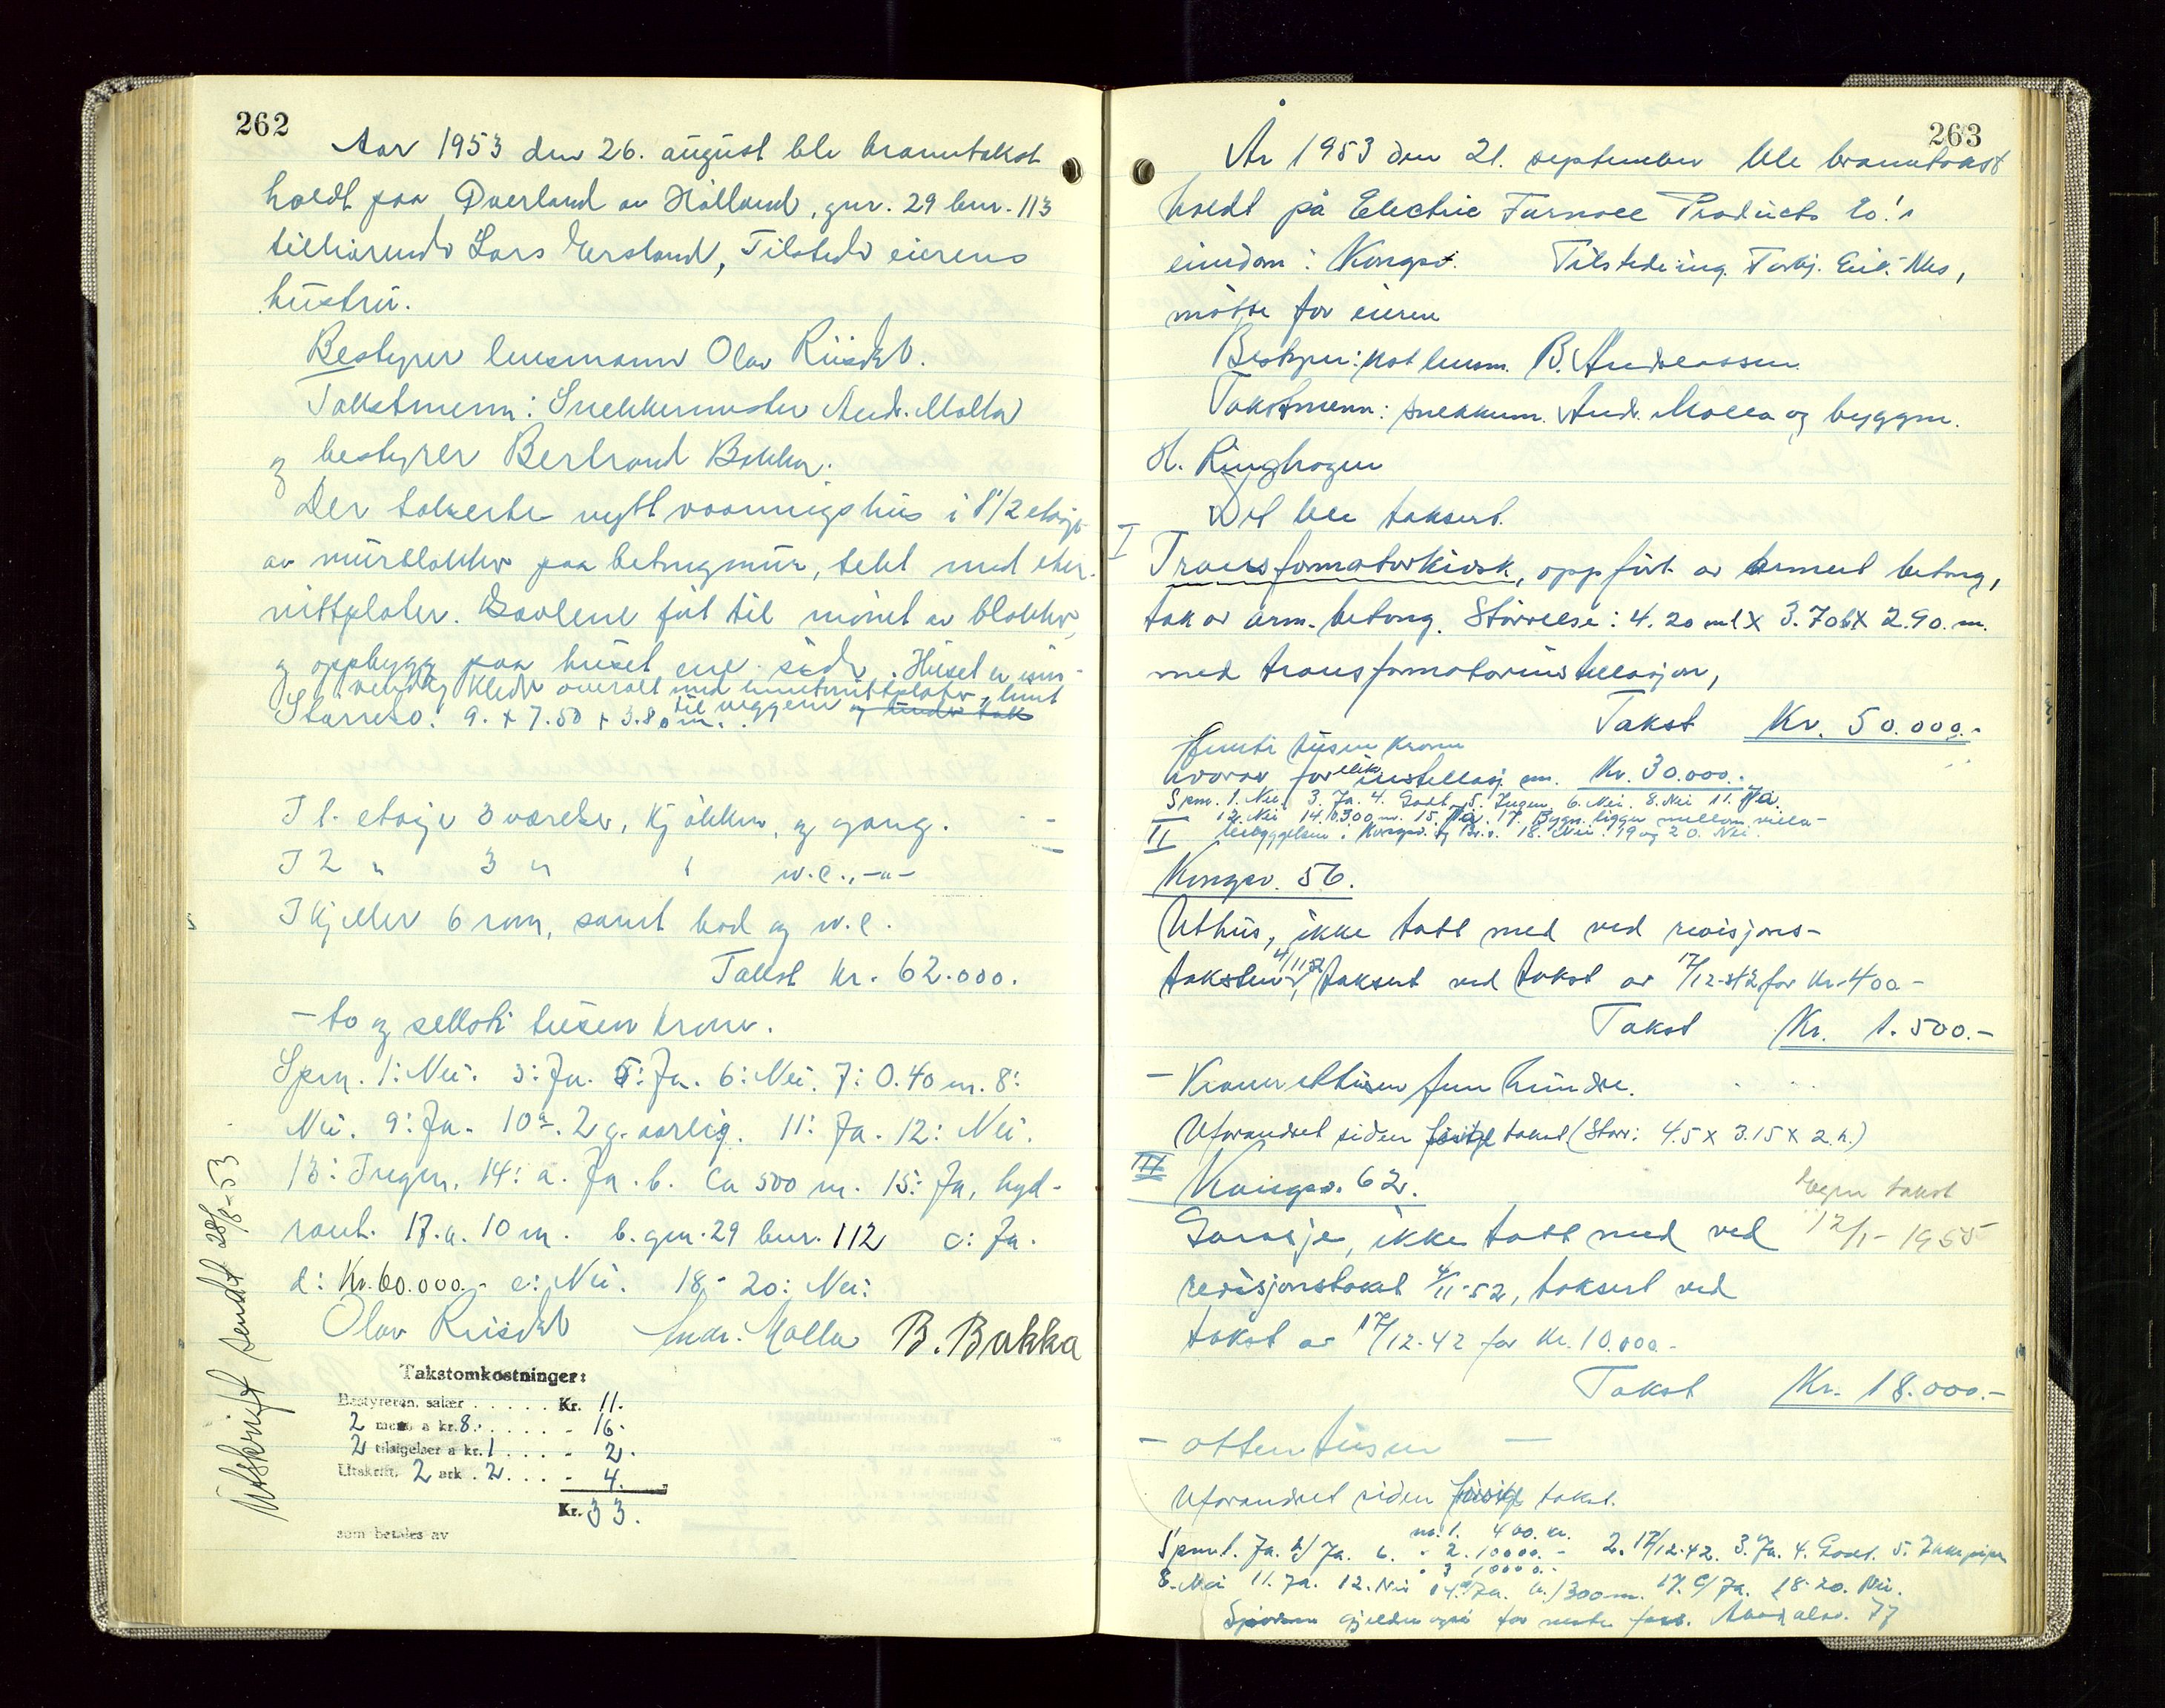 262
Aar 1953 den 26. august ble branntakst
holdt paa Øverland av Hålland, gnr. 29 bnr. 113
tilhørende Lars Ersland, Tilstede eierens
hustru.
Bestyrer lensmann Olav Riisdal.
Takstmenn: Snekkermester Andr. Molla
og bestyrer Bertrand Bakka.
Der takserte nytt vaaningshus i 1 1/2 etasje
av murblokker paa betongmur, tekt med eter-
nittplater. Gavlene ført til mønet av blokker,
og oppbygg paa huset ene side. Huset er inn-
vendig kledt overalt med
til veggene og under tak
Størrelse: 9. + 7.50 + 5.80 m.
I 1. etasje 3 værelser, kjøkken, og gang.
I 2 " 3 " w.c., -"-
I kjeller 6 rom, samt bod og w.c.
Takst kr. 62.000.
- to og seksti tusen kroner.
Spm. 1: Nei. 3: Ja. 5: Ja. 6: Nei. 7: 0.40 m. 8:
Nei. 9: Ja. 10a. 2 g. aarlig. 11: Ja. 12: Nei.
13: Ingen. 14: a. Ja. b. Ca 500 m. 15: Ja, hyd-
rant. 17. a. 10 m. b. gnr. 29 bnr. 112 c: Ja.
d: Kr. 60.000.- e: Nei. 18 - 20: Nei:
Olav Riisdal Andr. Molla B. Bakka
Utskrift sendt 28/8-53
Takstomkostninger:
Bestyreren, salær . . . . . Kr. 11.
2 menn a kr. 8. . . . . - 16.
2 tilsigelser a kr. 1 . . . . - 2.
Utskrift, 2 ark . 2 . . . . - 4.
Kr. 33.
som betales av
263
År 1953 den 21. september ble branntakst
holdt på Electric Furnace Products Co.'s
eiendom: Kongsv. Tilstede ing. Torbj. Eik-Nes,
møtte for eieren
Bestyrer: kst lensm. B. Andreassen
Takstmenn: snekkerm. Andr. Molla og byggm.
H. Ringhagen
Det ble taksert.
I
Transformatorkiosk, oppført av armert betong,
tak av arm. betong. Størrelse: 4.20 ml x 3.70 b x 2.90 m.
med transformatorinstallasjon,
Takst Kr. 50.000.-
Femti tusen kroner
hvorav for elek. installasj. en. Kr. 30.000.-
Spm. 1. Nei. 3. Ja. 4. Godt. 5. Ingen. 6. Nei. 8. Nei 11. Ja.
12. Nei 14. b 300 m. 15. Ja. 17. Bygn. ligger mellom villa-
bebyggelsen i Kongsv. og 18. Nei. 19 og 20. Nei.
II
Kongsv. 56.
Uthus, ikke tatt med ved revisjons-
taksten 4/11 52, taksert ved takst av 17/12-42 for kr. 400-
Takst Kr. 1.500.-
- Kroner ettusen fem hundre.
Uforandret siden forrige takst (Størr: 4.5 x 3.15 x 2. h.)
III
Kongsv. 62.
Egen takst
12/1-1955
Garasje, ikke tatt med ved
revisjonstakst 4/11-52, taksert ved
takst av 17/12-42 for kr. 10.000.-
Takst Kr. 18.000.-
- atten tusen -
Uforandret siden forrige takst.
Spm. 1. Ja. Ja. 6. nr. 1. 400. kr. 2. 17/12-42. 3. Ja. 4. Godt. 5. Ikke pipe
" 2. 10000.-
" 3 10000.-
8. Nei 11. Ja. 12. Nei 14. a/ Ja. b.) 300 m. 17. c/ Ja. 18-20. Nei.
gjelder også for neste